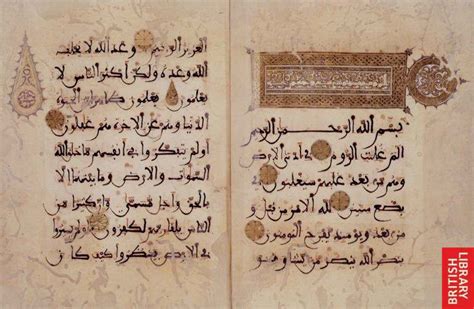 بسم الله الرحمن الرحيم
الم غلبت الروم في أدنى الارض
وهم من بعد غلبهم سيغلبون في
بضع سنين لله الامر من قبل و
من بعد ويومئذ يفرح المومنون
بنصر الله ينصر من يشاء وهو
العزيز الرحيم وعد الله لا يخلف
الله وعده ولكن أكثر الناس لا
يعلمون يعلمون ظهرا من الحيوة
الدنيا وهم عن الاخرة هم غفلون
أولم يتفكروا في أنفسهم ما خلق الله
السموت والارض وما بينهما إلا
بالحق وأجل مسمى وإن كثيرا من
الناس بلقاء ربهم لكفرون أولم يسيروا
في الارض فينظروا كيف كان
BRITISH
LIBRARY